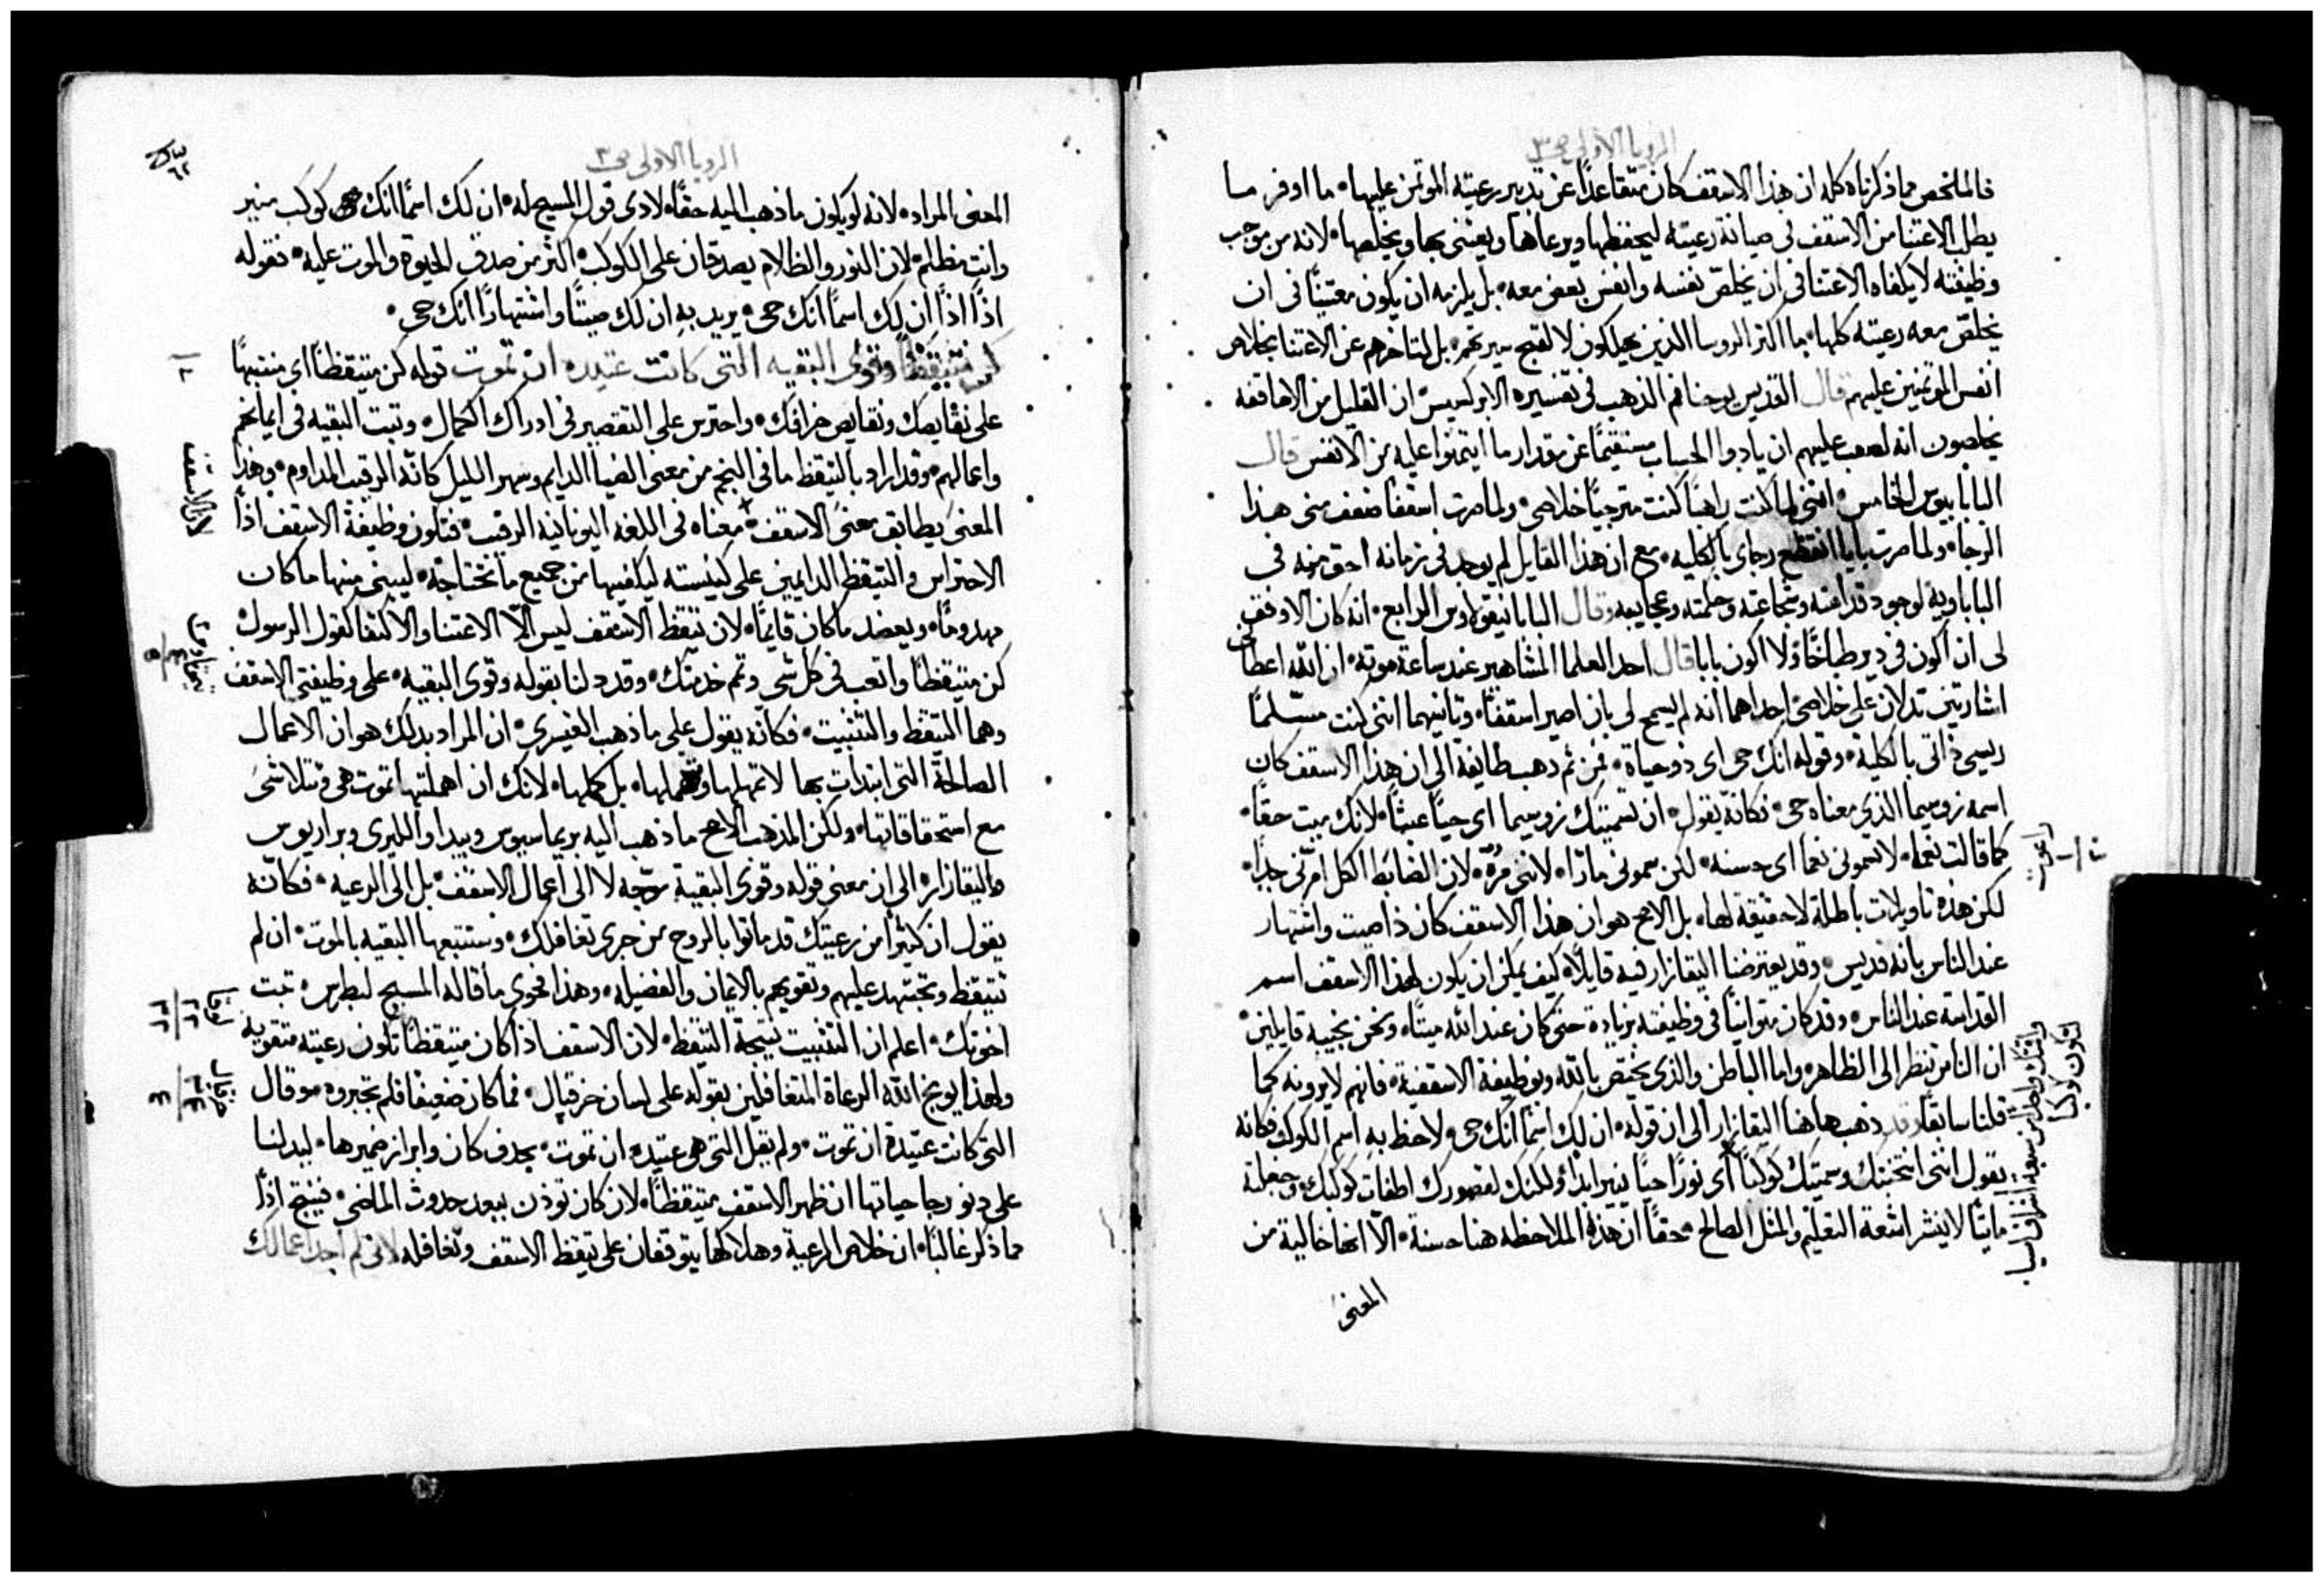 الرويا الاولى ص٣
فالملخص مما ذكرناه كله ان هذا الاسقف كان متقاعدًا عن تدبير رعيته الموتمن عليها• ما اوفر ما
يطلب الاعتنا من الاسقف فى صيانة رعيته ليحفظها ويرعاها ويعتنى بها ويخلصها• لانه من موجب
وظيفته لا يكفاه الاعتنا فى ان يخلص نفسه وانفس بعض معه• بل يلزمه ان يكون معتنيًا فى ان
يخلص معه رعيته كلها• ما اكثر الروسا الذين يهلكون لا لقبح سيرتهم• بل لتاخرهم عن الاعتنا بخلاص
انفس الموتمنين عليهم قال القديس يوحنا فم الذهب فى تفسيره الابركسيس• ان القليل من الاساقفه
يخلصون انه لصعب عليهم ان يادوا الحساب مستقيمًا عن مقدار ما ايتمنوا عليه من الانفس قال
البابا بيوس الخامس• اننى لما كنت راهبًا كنت مترجيًا خلاصى• ولما صرت اسقفًا ضعف منى هذا
الرجا• ولما صرت بابا انقطع رجاى بالكليه• مع ان هذا القايل لم يوجد فى زمانه احق منه فى
الباباويه لوجود قداسته وشجاعته وحكمته وعجايبه وقال البابا نيقولاوس الرابع• انه كان الاوفق
لى ان اكون فى دير طباخًا ولا اكون بابا قال احد العلما المشاهير عند ساعة موته• ان الله اعطانى
اشارتين تدلان على خلاصى احداهما انه لم يسمح لى بان اصير اسقفًا• وثانيهما اننى كنت مسلمًا
ريسى ذاتى بالكلية• وقوله انك حى اى ذو حياة• فمن ثم ذهب طايفة الى ان هذا الاسقف كان
اسمه زوسيما الذى معناه حى• فكانه يقول• ان تسميتك زوسيما اى حيًا عبثًا• لانك ميت حقًا•
كما قالت نعما• لا تسمونى نعما اى حسنه• لكن سمونى مارا• لاننى مرّة• لان الضابط الكل امرّنى جدا•
لكن هذه تاويلات باطلة لا حقيقة لها• بل الاصح هو ان هذا الاسقف كان ذا صيت واشتهار
عند الناس بانه قديس• وقد يعترضنا اليقازار فيه قايلًا• كيف يمكن ان يكون لهذا الاسقف اسم
القداسة عند الناس• وقد كان متوانيًا فى وظيفته بزيادة حتى كان عند الله ميتًا• ونحن نجيبه قايلين•
ان الناس تنظر الى الظاهر• واما الباطن والذى يختص بالله وبوظيفة الاسقفية• فانهم لا يرونه كما
قلنا سابقًا وقد ذهب هاهنا اليقازار الى ان قوله• ان لك اسمًا انك حى• لاحظ به اسم الكوكب فكانه
يقول اننى انتخبتك وسميتك كوكبًا اى نورًا حيًا نيرا بذاته• ولكنك لقصورك اطفات كوكبك وجعلته
مايتًا لا ينشر اشعة التعليم والمثل الصالح• حقًا ان هذه الملاحظه هنا حسنة• الا انها خالية من
المعنى
راعوث
الرويا الاولى ص٣
المعنى المراد• لانه لو يكون ما ذهب اليه حقًا• لادى قول المسيح له• ان لك اسمًا انك كوكب منير
وانت مظلم• لان النور والظلام يصدقان على الكوكب• اكثر من صدق الحيوة والموت عليه• فقوله
اذًا اذًا ان لك اسمًا انك حى• يريد به ان لك صيتًا واشتهارًا انك حى•
كن متيقظًا وقوى البقيه التى كانت عتيده ان تموت قوله كن متيقظًا اى منتبهًا
على نقايصك ونقايص خرافك• واحترس على التقصير فى ادراك الكمال• وثبت البقيه فى ايمانهم
واعمالهم• وقد اراد بالتيقظ ما فى النجم من معنى الضيا الدايم وسهر الليل كانه الرقيب المداوم• وهذا
المعنى يطابق معنى الاسقف• معناه فى اللغه اليونانيه الرقيب• فتكون وظيفة الاسقف اذًا
الاحتراس والتيقظ الدايمين على كنيسته ليكفيها من جميع ما تحتاجه• ليبنى منها ما كان
مهدومًا• ويعضد ما كان قايمًا• لان تيقظ الاسقف ليس الّا الاعتنا والاكتفا كقول الرسول
كن متيقظًا واتعب فى كل شى وتم خدمتك• وقد دلنا بقوله وقوى البقيه• على وظيفتى الاسقف
وهما التيقظ والتثبيت• فكانه يقول على ما ذهب الغيسرى• ان المراد بذلك هو ان الاعمال
الصالحة التى ابتدات بها لا تمهلها وتهملها• بل كملها• لانك ان اهملتها تموت هى وتتلاشى
مع استحقاقاتها• ولكن المذهب الاصح ما ذهب اليه بريماسيوس وبيدا والليرى وبراريوس
واليقازار• الى ان معنى قوله وقوى البقية موجه لا الى اعمال الاسقف• بل الى الرعيه• فكانه
يقول ان كثيرًا من رعيتك قد ماتوا بالروح من جرى تغافلك• وستتبعها البقيه بالموت• ان لم
تتيقظ وتجتهد عليهم وتقويهم بالايمان والفضيله• وهذا فحوى ما قاله المسيح لبطرس• ثبت
اخوتك• اعلم ان التثبيت نتيجة التيقظ• لان الاسقف اذا كان متيقظًا تكون رعيته متقوية
ولهذا يوبخ الله الرعاة المتغافلين بقوله على لسان حزقيال• فما كان ضعيفًا فلم تجبروه• وقال
التى كانت عتيدة ان تموت• ولم يقل التى هى عتيده ان تموت• بحذف كان وابراز ضميرها• ليدلنا
على دنو رجا حياتها ان ظهر الاسقف متيقظًا• لان كان توذن ببعد حدوث الماضى• فينتج اذًا
مما ذكر غالبًا• ان خلاص الرعية وهلاكها يتوقفان على تيقظ الاسقف وتغافله لانى لم اجد اعمالك
لوقا
٢٢
٣٢
حزقيال
٣٤
٤